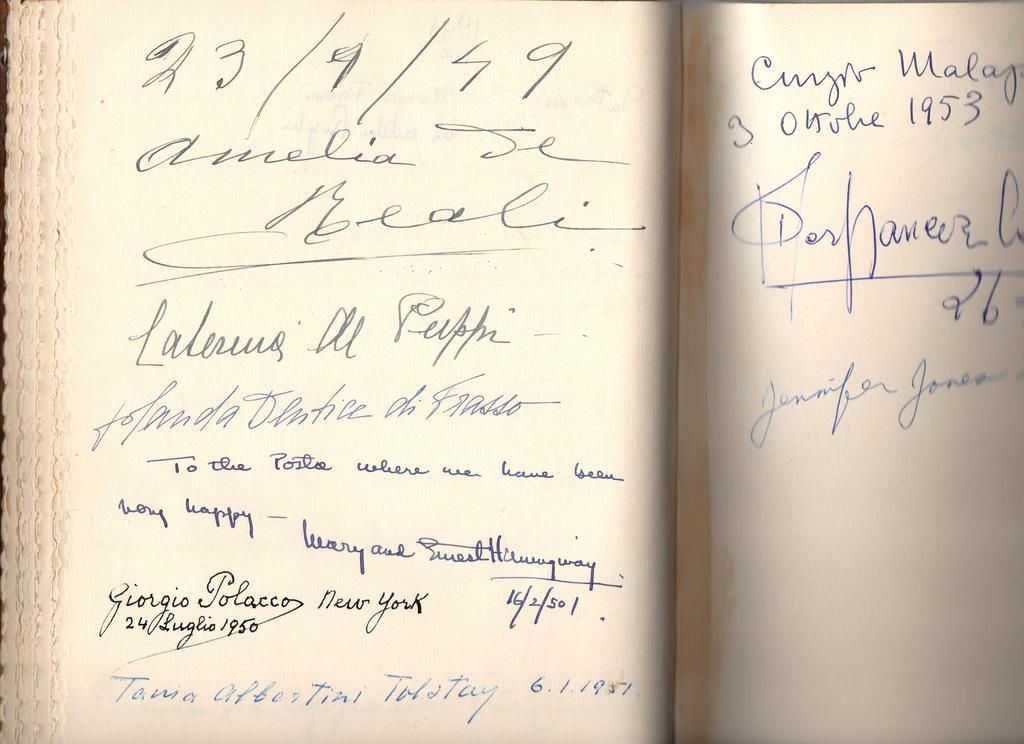 23/9/49
Amelia De
Reali
Caterina de Puppi
Jolanda Dentice di Frasso
To the Posta where we have been
very happy —
Mary and Ernest Hemingway
16/2/50
Giorgio Polacco New York
24 Luglio 1950
Tania Albertini Tolstoy 6.1.1951.
Curzio Malap
3 Ottobre 1953
26
Jennifer Jones